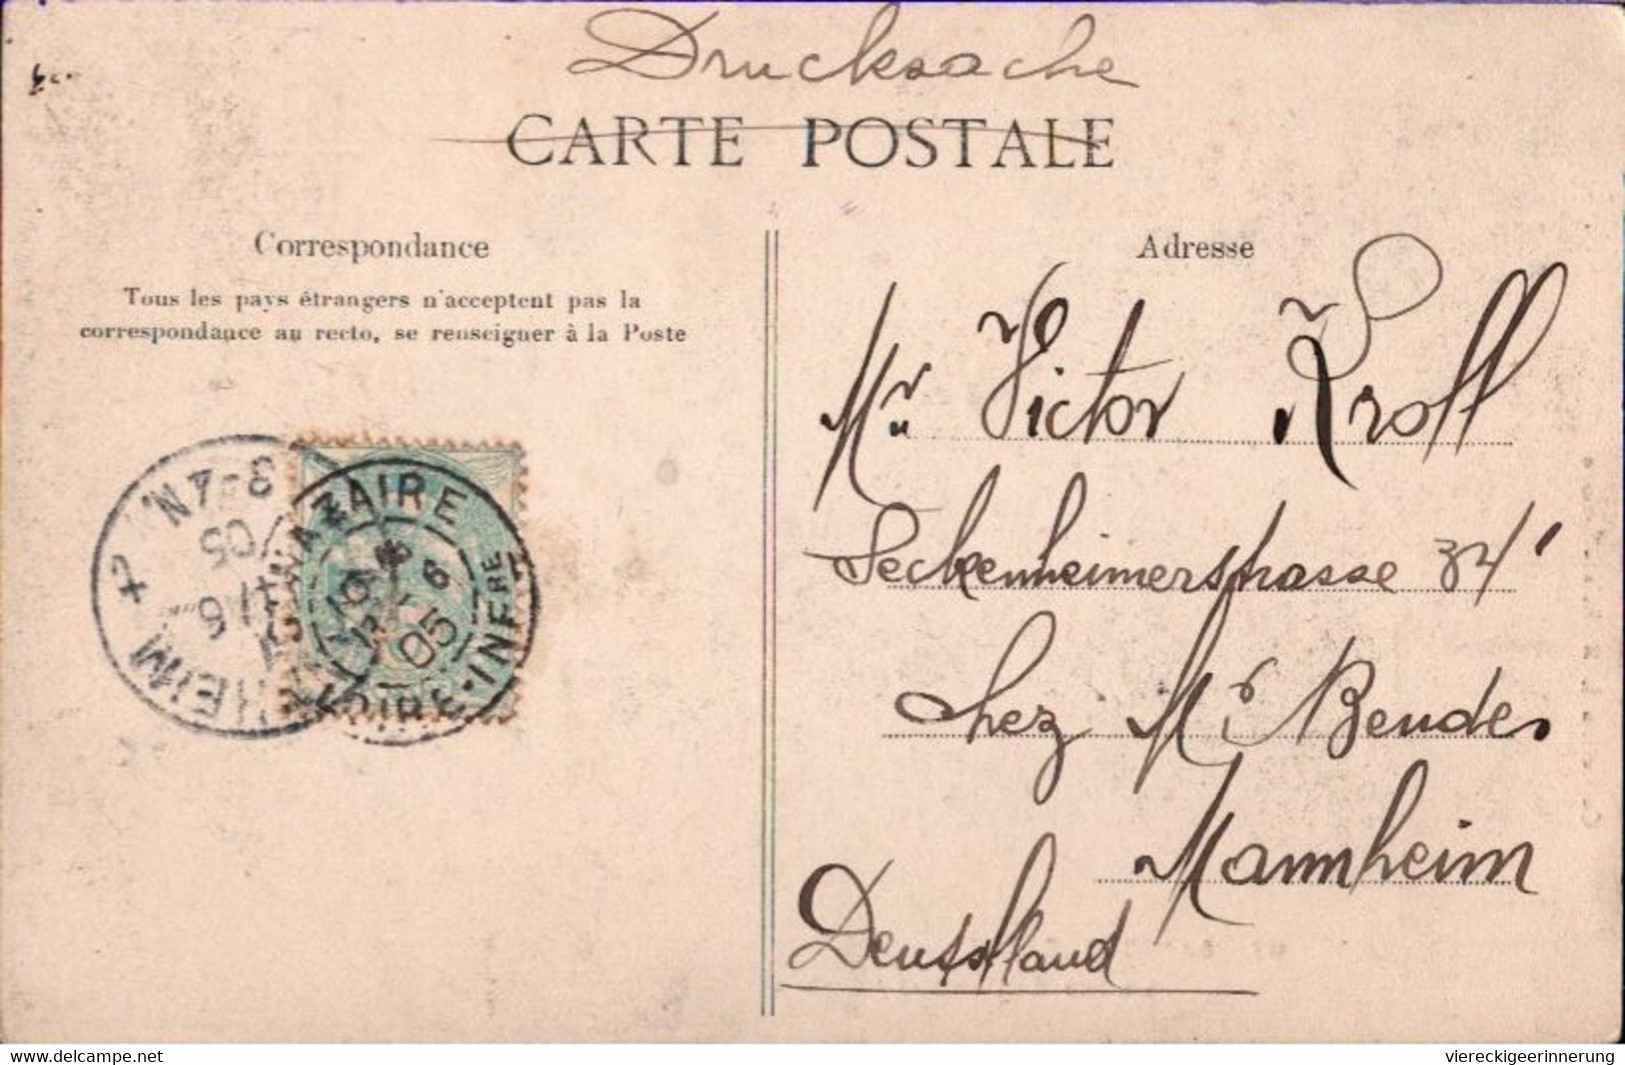 Drucksache
CARTE POSTALE
Correspondance
Tous les pays étrangers n'acceptent pas la
correspondance au recto, se renseigner à la Poste
Adresse
Mr Victor Kroll
Seckenheimerstrasse 34
chez Mr Bender
Mannheim
Deutschland
AZAIRE
6
05
LOIRE-INFRE
HEIM
3-4N.
05
6
delcampe.net
viereckigeerinnerung